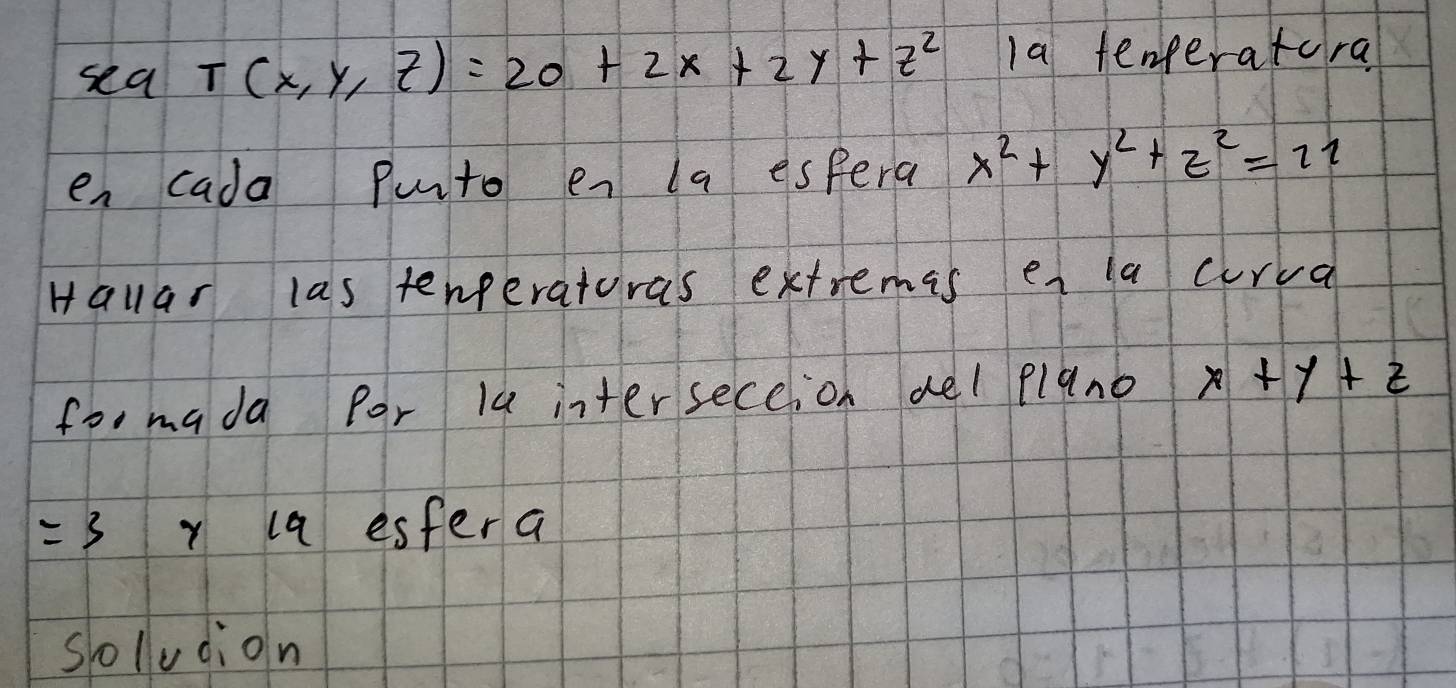 sea T(x, y, z) = 20 + 2x + 2y + z² la tenperatura
en cada Punto en la esfera x² + y² + z² = 11
Hallar las tenperaturas extremas en la curva
formada Por la interseccion del Plano x + y + z
= 3 y la esfera
Solucion